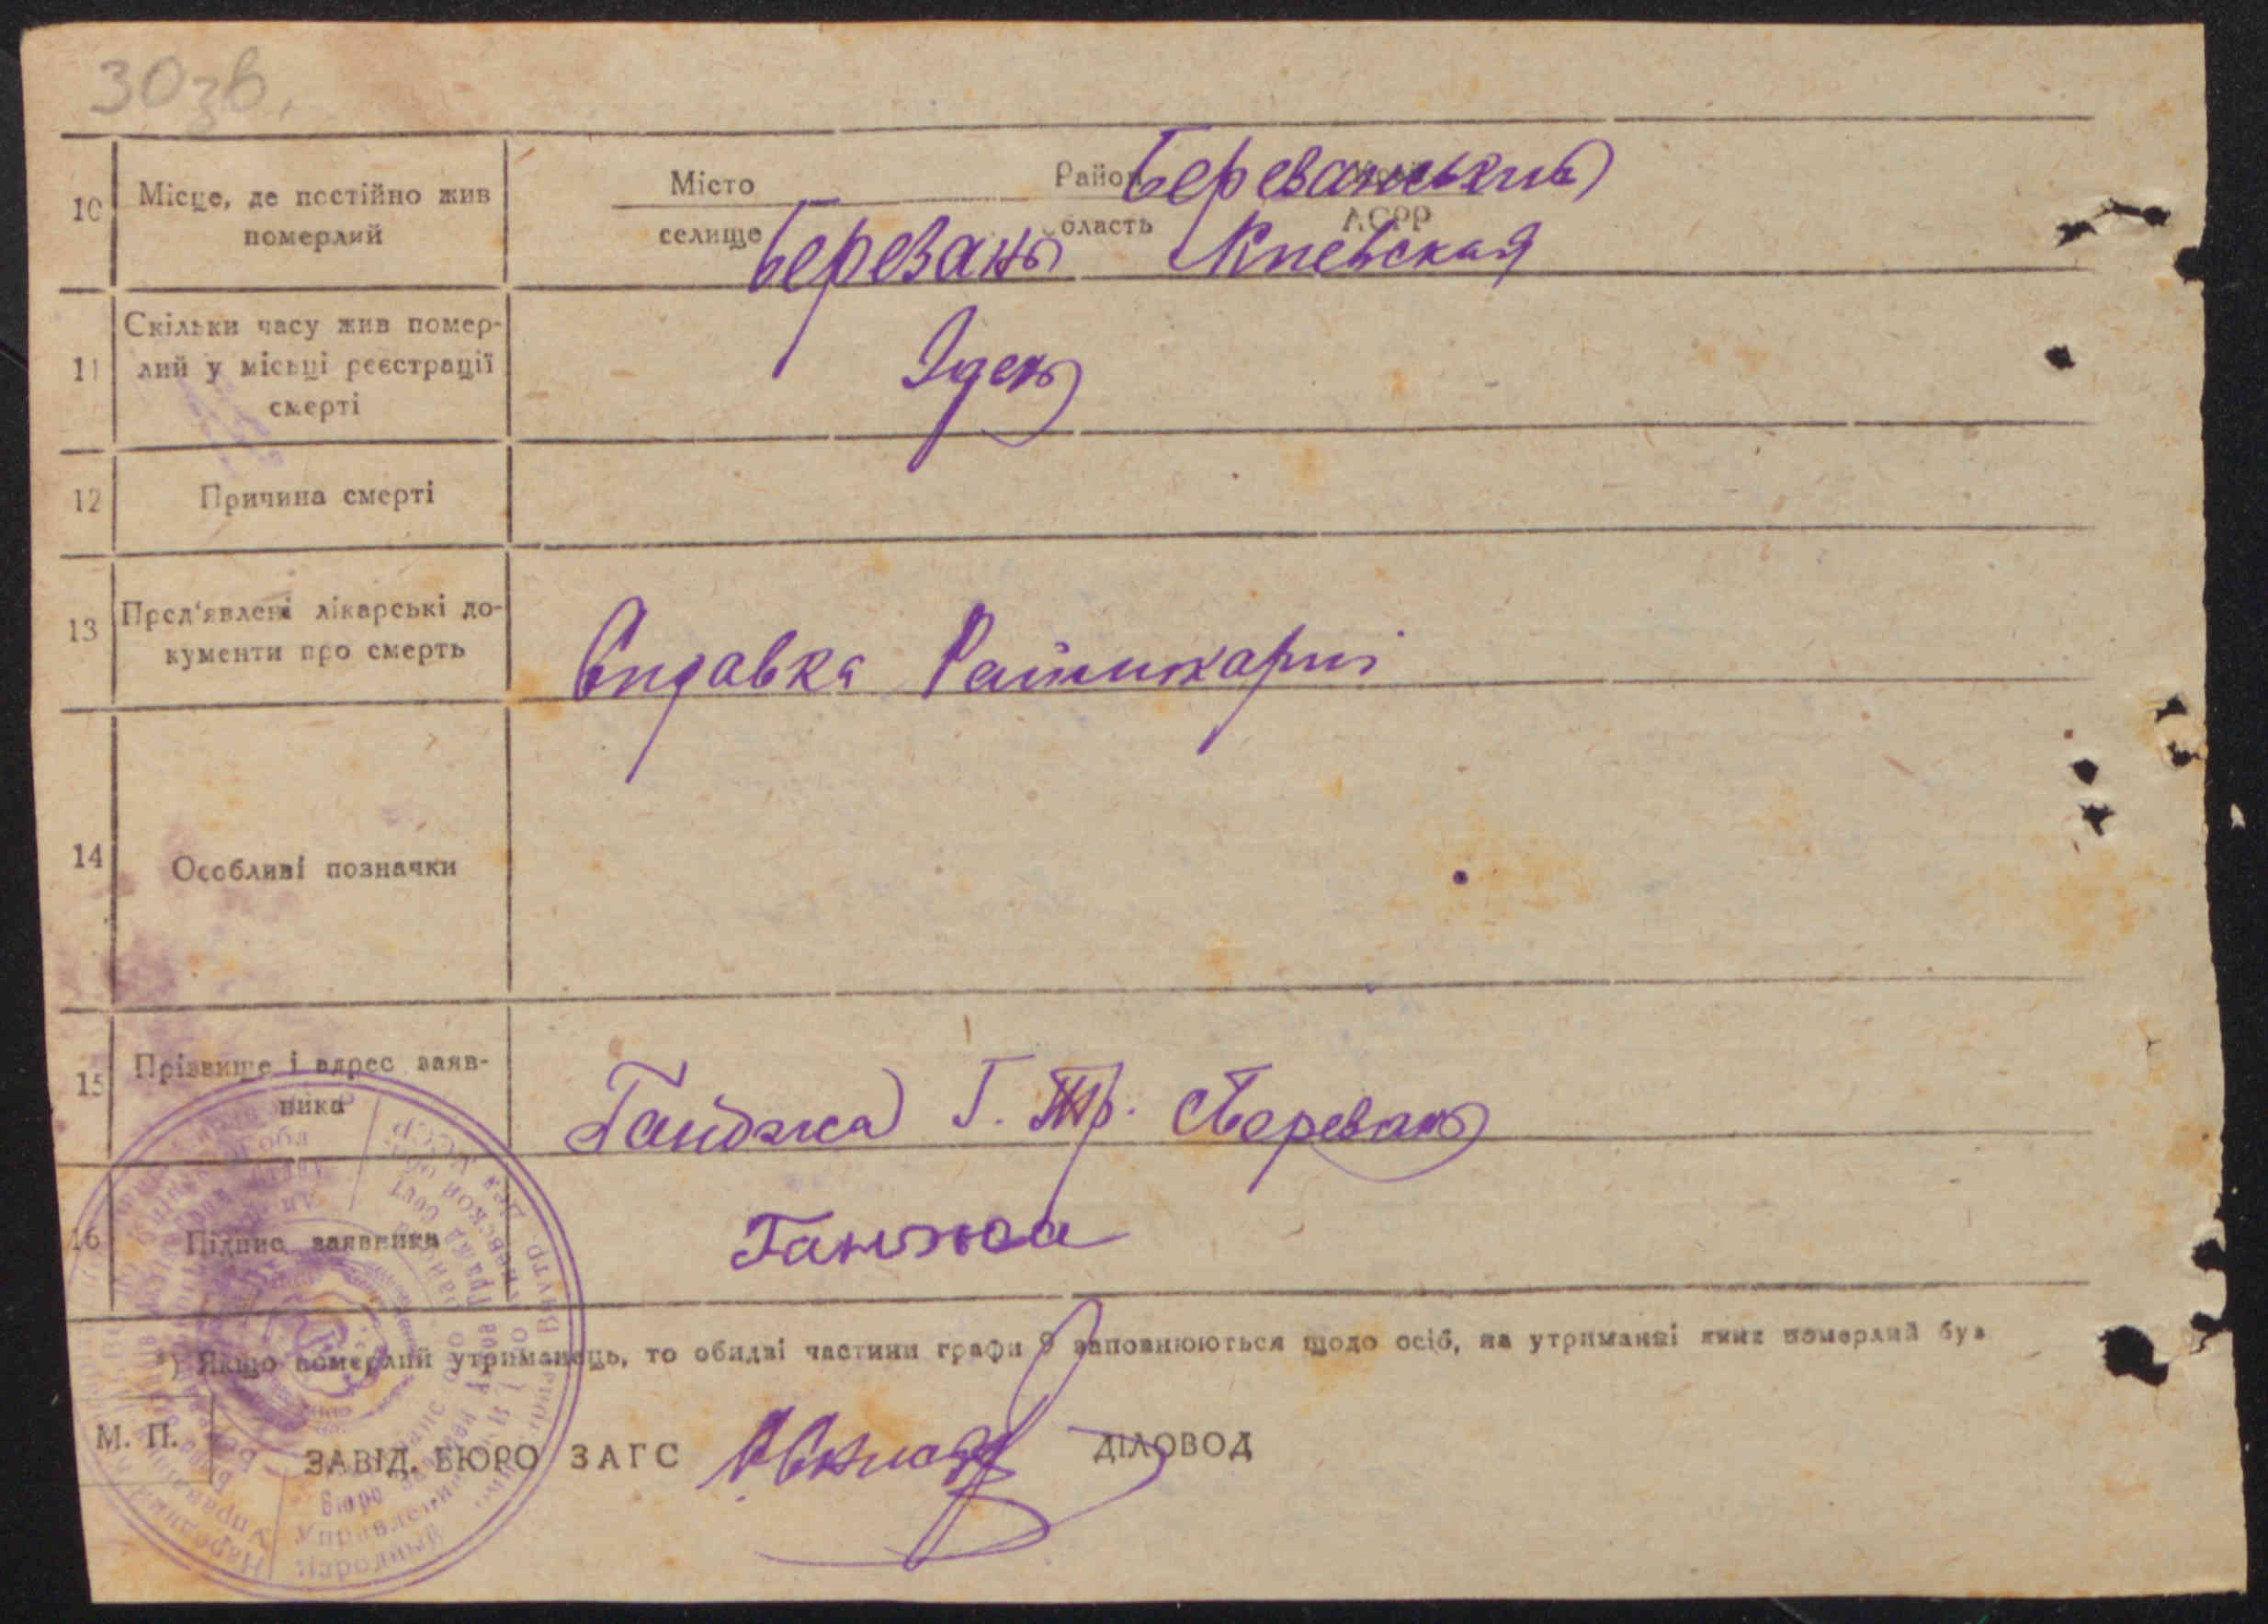 30зв.
10 Місце, де постійно жив померлий
Місто Район Березанський
селище Березань область Киевская АСРР
11 Скільки часу жив помер-
лий у місьці реєстрації
смерті
1день
12 Причина смерті
13 Пред'явлені лікарські до-
кументи про смерть
Справка Райлікарні
14 Особливі позначки
15 Прізвище і адрес заяв-
ника
Ганджа Г. Березань
16 Підпис заявника
Ганжа
*) Якщо померлий утриманець, то обидві частини графи 9 заповнюються щодо осіб, на утриманні яких померлий був
М. П.
ЗАВІД. БЮРО ЗАГС ДІЛОВОД